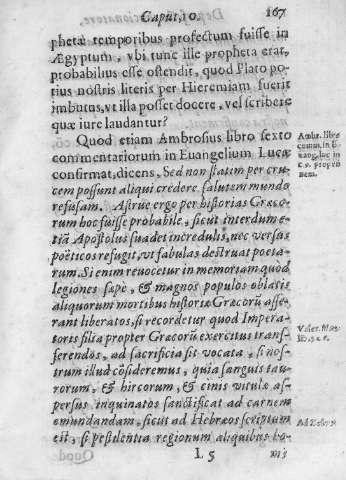 Caput, 10.
167
phetæ temporibus profectum fuisse in
Ægyptum, vbi tunc ille propheta erat,
probabilius esse ostendit, quod Plato po-
tius nostris literis per Hieremiam fuerit
imbutus, vt illa posset docere, vel scribere
quæ iure laudantur?
Quod etiam Ambrosius libro sexto
commentariorum in Euangelium Lucæ
confirmat, dicens, Sed non statim per cru-
cem possunt aliqui credere salutem mundo
refusam. Astrue ergo per historias Græco-
rum hoc fuisse probabile, sicut interdum e-
tiā Apostolus suadet incredulis, nec versus
poëticos refugit, vt fabulas destruat poeta-
rum. Si enim reuocetur in memoriam quod
legiones sæpe, & magnos populos oblatis
aliquorum mortibus historiæ Græcorū asse-
rant liberatos, si recordetur quod Impera-
toris filia propter Græcorū exercitus trans-
ferendos, ad sacrificia sit vocata, si nos-
trum illud cōsideremus, quia sanguis tau-
rorum, & hircorum, & cinis vitulæ as-
persus inquinatos sanctificat ad carnem
emundandam, sicut ad Hebræos scriptum
est, si pestilentia regionum aliquibus ho-
I. 5
Ambr. libro
comm. in E-
uang. Luc in
c. 9. propè fi
nem.
Valer. Max.